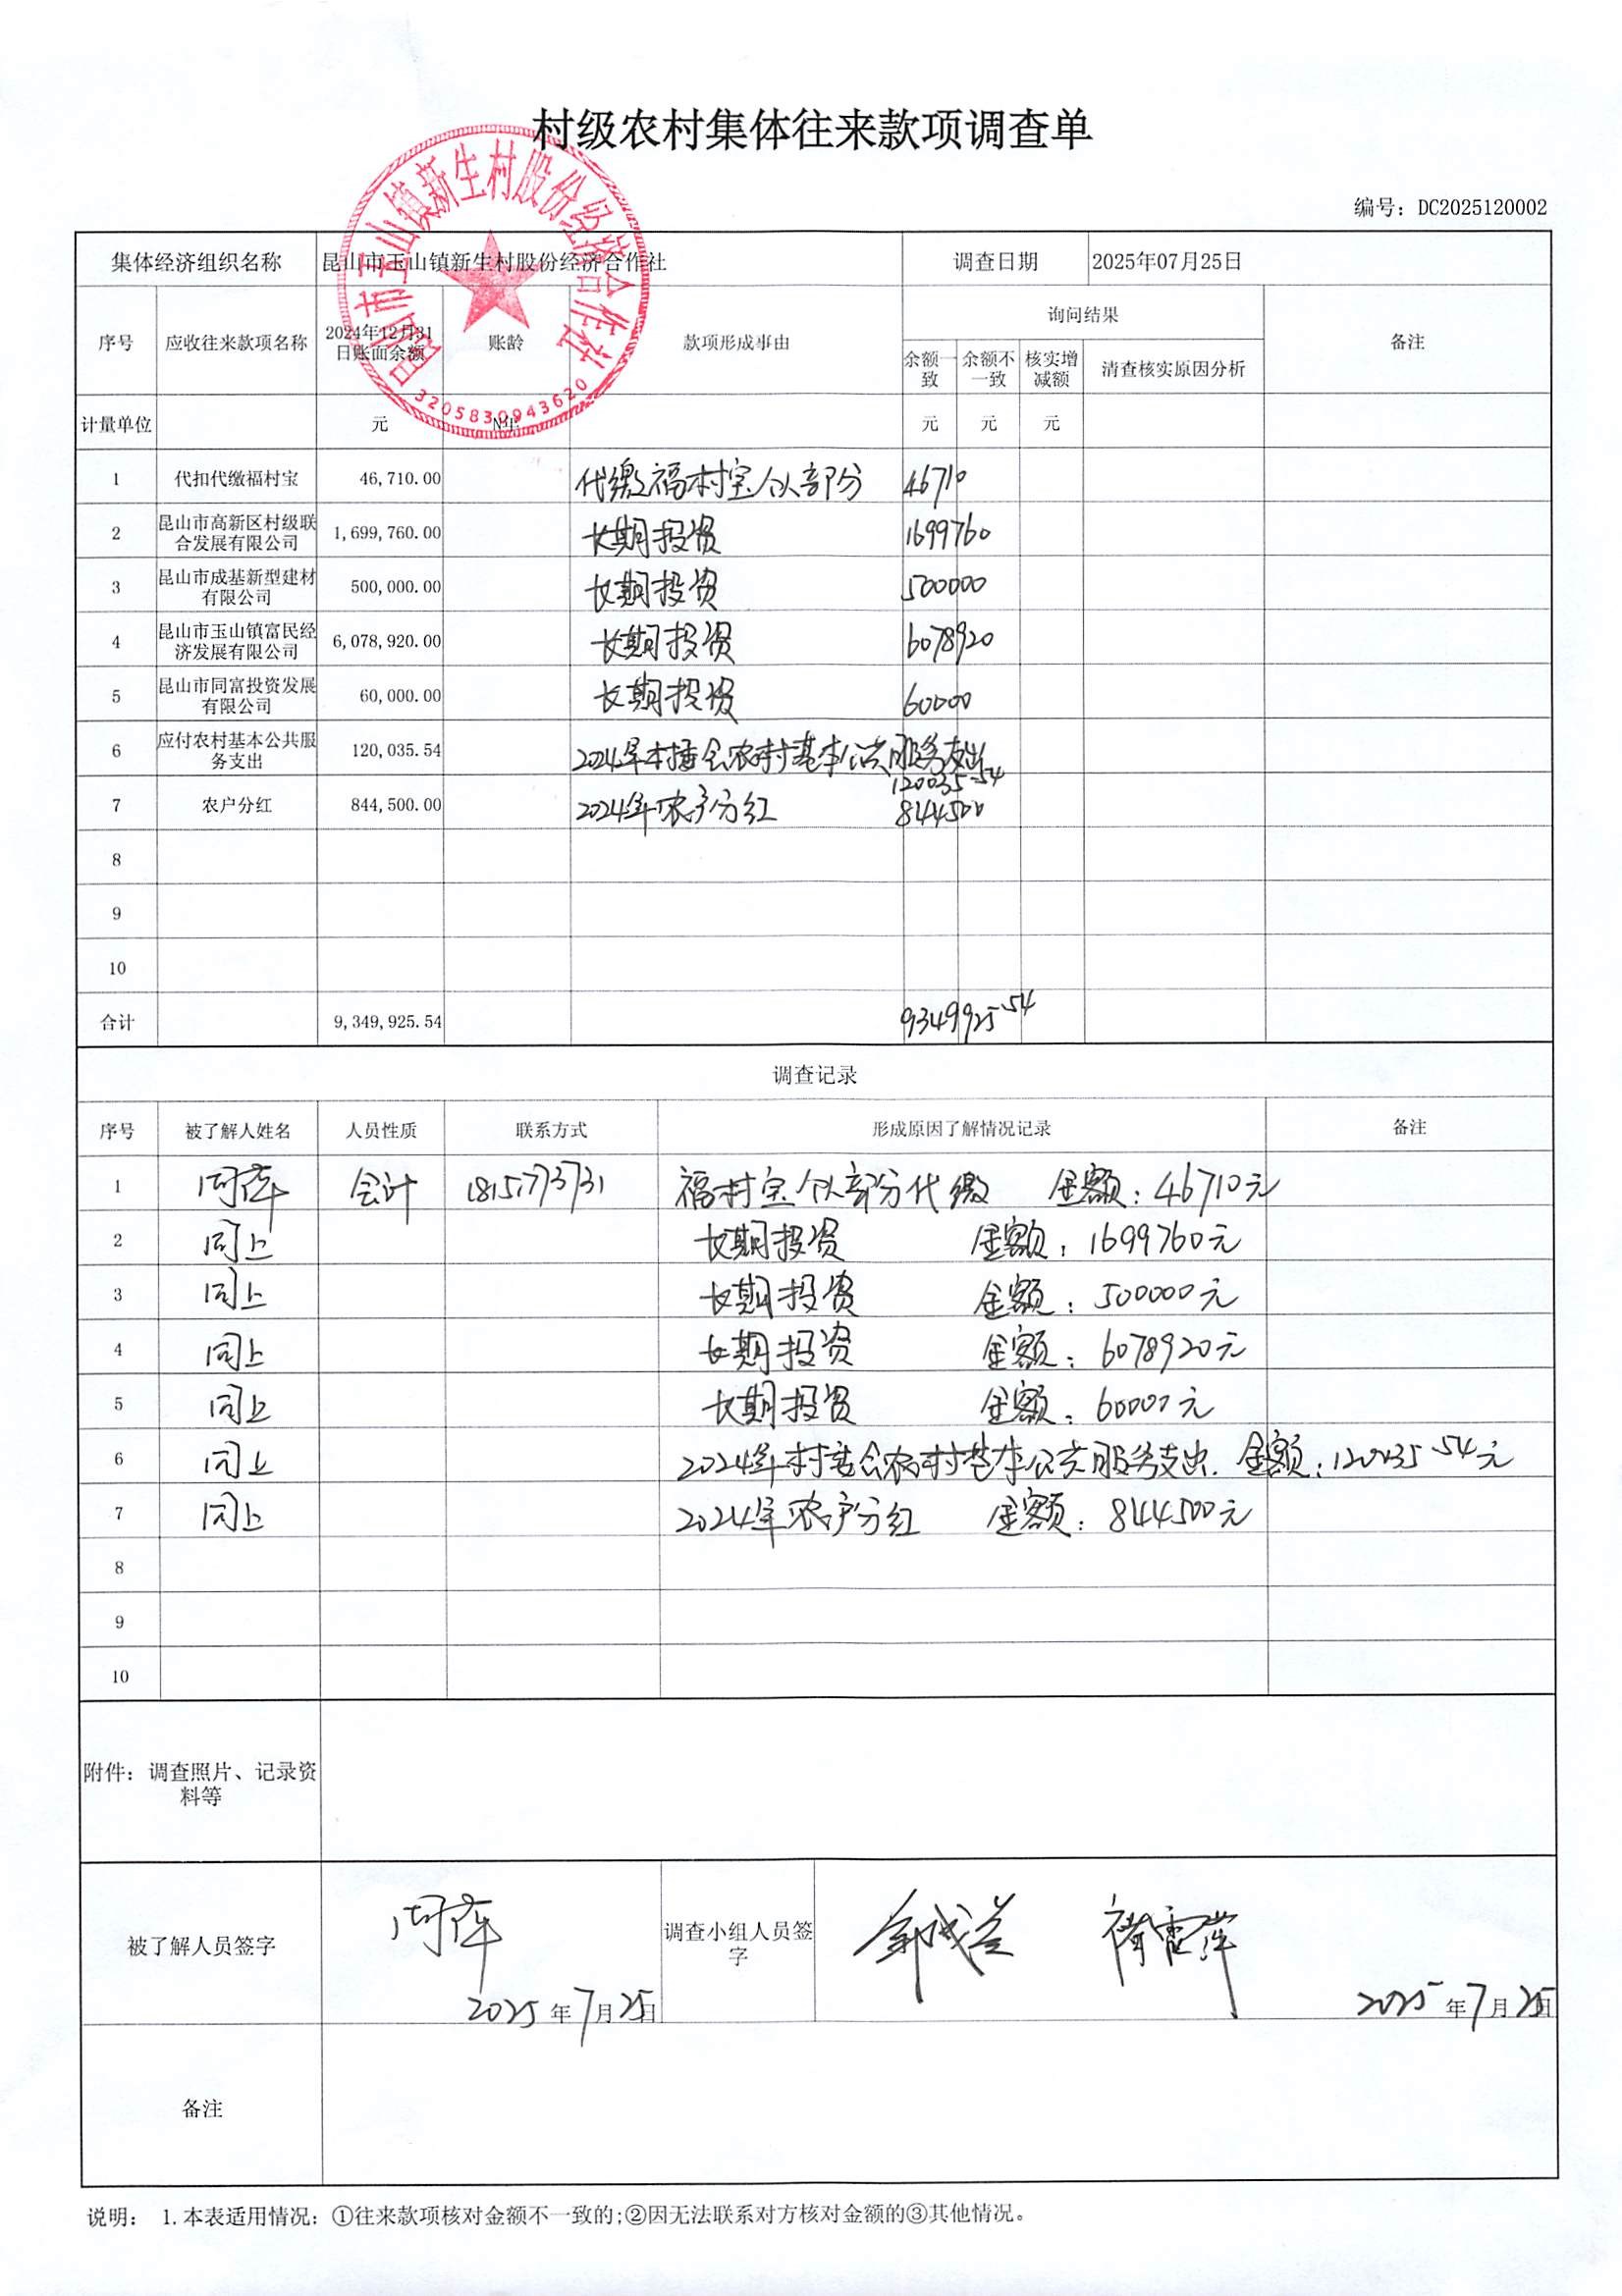 村级农村集体往来款项调查单
编号：DC2025120002
集体经济组织名称 昆山市玉山镇新生村股份经济合作社 调查日期 2025年07月25日
昆山市玉山镇新生村股份经济合作社
3205830943620
序号 应收往来款项名称 2024年12月31日账面余额 账龄 款项形成事由 询问结果 备注
余额一致 余额不一致 核实增减额 清查核实原因分析
计量单位 元 N年 元 元 元
1 代扣代缴福村宝 46,710.00 代缴福村宝个人部分 46710
2 昆山市高新区村级联合发展有限公司 1,699,760.00 长期投资 1699760
3 昆山市成基新型建材有限公司 500,000.00 长期投资 500000
4 昆山市玉山镇富民经济发展有限公司 6,078,920.00 长期投资 6078920
5 昆山市同富投资发展有限公司 60,000.00 长期投资 60000
6 应付农村基本公共服务支出 120,035.54 2024年村委会农村基本公共服务支出 120035.54
7 农户分红 844,500.00 2024年农户分红 844500
8
9
10
合计 9,349,925.54 9349925.54
调查记录
序号 被了解人姓名 人员性质 联系方式 形成原因了解情况记录 备注
1 周萍 会计 福村宝个人部分代缴 金额：46710元
2 同上 长期投资 金额：1699760元
3 同上 长期投资 金额：500000元
4 同上 长期投资 金额：6078920元
5 同上 长期投资 金额：60000元
6 同上 2024年村委会农村基本公共服务支出. 金额：120035.54元
7 同上 2024年农户分红 金额：844500元
8
9
10
附件：调查照片、记录资料等
被了解人员签字 周萍 2025年7月25日 调查小组人员签字 2025年7月25日
备注
说明： 1.本表适用情况：①往来款项核对金额不一致的；②因无法联系对方核对金额的③其他情况。